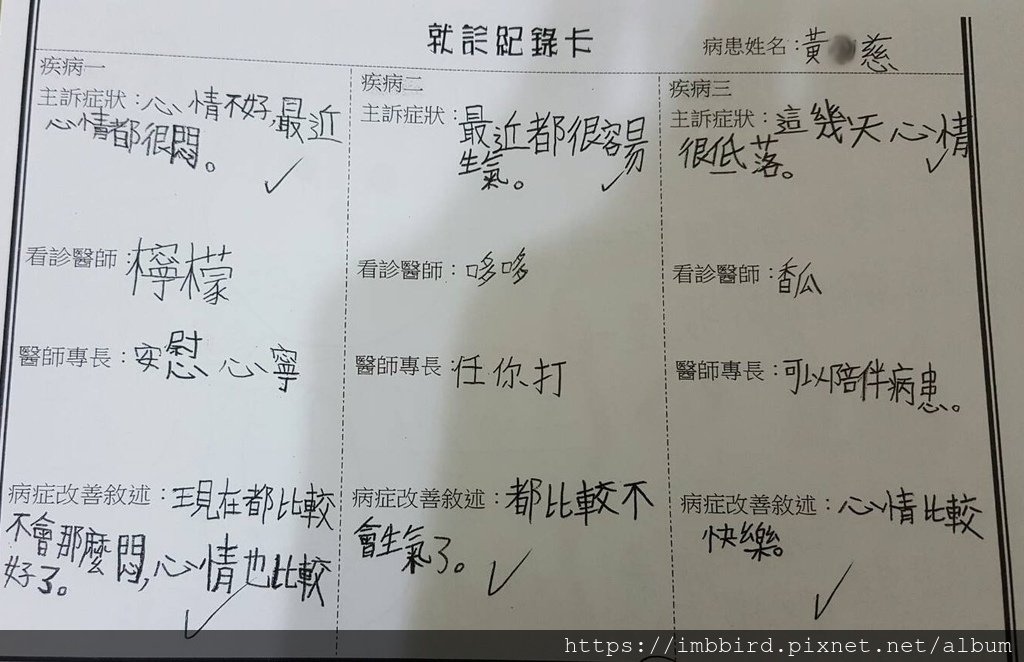 就診紀錄卡
病患姓名：黃 慈
疾病一
主訴症狀：心情不好,最近
心情都很悶。
看診醫師：檸檬
醫師專長：安慰心寧
病症改善敘述：現在都比較
不會那麼悶,心情也比較
好了。
疾病二
主訴症狀：最近都很容易
生氣。
看診醫師：哆哆
醫師專長：任你打
病症改善敘述：都比較不
會生氣了。
疾病三
主訴症狀：這幾天心情
很低落。
看診醫師：香瓜
醫師專長：可以陪伴病患。
病症改善敘述：心情比較
快樂。
https://imbbird.pixnet.net/album